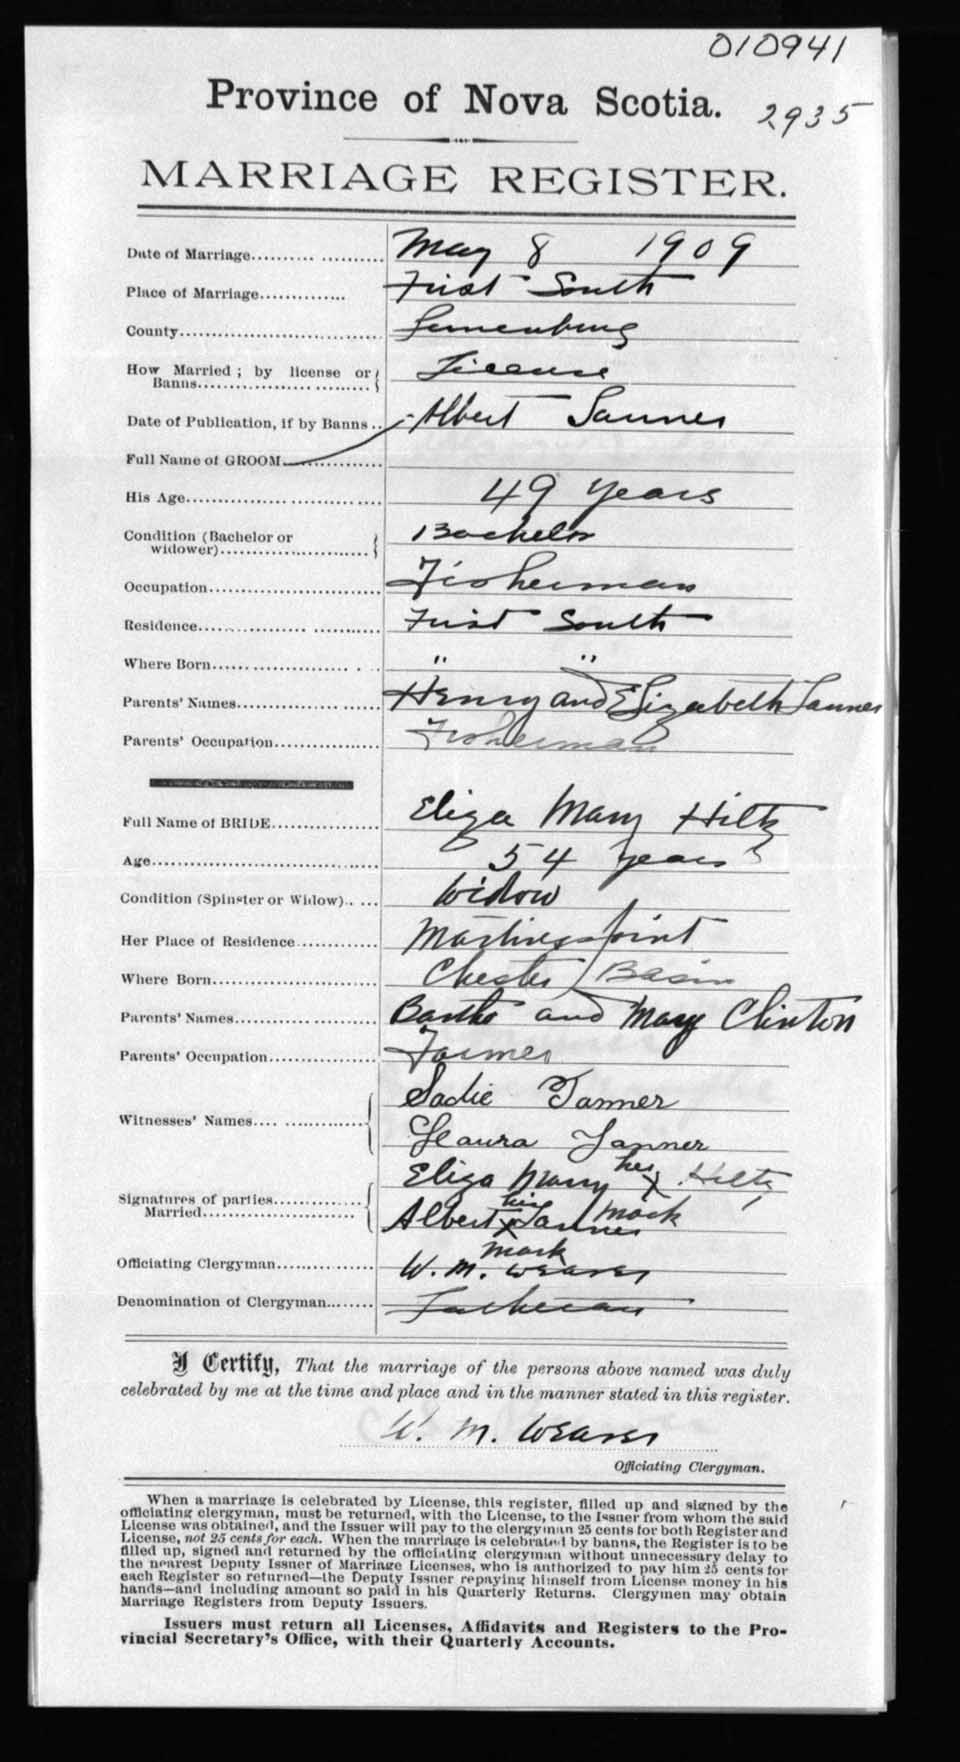 010941
Province of Nova Scotia.
2935
MARRIAGE REGISTER.
Date of Marriage.................... May 8 1909
Place of Marriage.............. First South
County................................. Lunenburg
How Married ; by license or
Banns............................ License
Date of Publication, if by Banns .. Albert Tanner
Full Name of GROOM.................
His Age................................ 49 years
Condition (Bachelor or
widower)........................ Bachelor
Occupation............................. Fisherman
Residence.............................. First South
Where Born...................... " "
Parents' Names....................... Henry and Elizabeth Tanner
Parents' Occupation................ Fisherman
Full Name of BRIDE.................. Eliza Mary Hiltz
Age..................................... 54 years
Condition (Spinster or Widow)..... Widow
Her Place of Residence............. Martins point
Where Born........................... Chester Basin
Parents' Names....................... and Mary Clinton
Parents' Occupation................ Farmer
Sadie Tanner
Witnesses' Names...................
Laura Tanner
Eliza Mary her x Hiltz
Signatures of parties...............
mark
Married...........................
Albert his x Tanner
mark
Officiating Clergyman............... W. M. Weaver
Denomination of Clergyman....... Lutheran
I Certify, That the marriage of the persons above named was duly
celebrated by me at the time and place and in the manner stated in this register.
W. M. Weaver
Officiating Clergyman.
When a marriage is celebrated by License, this register, filled up and signed by the
officiating clergyman, must be returned, with the License, to the Issuer from whom the said
License was obtained, and the Issuer will pay to the clergyman 25 cents for both Register and
License, not 25 cents for each. When the marriage is celebrated by banns, the Register is to be
filled up, signed and returned by the officiating clergyman without unnecessary delay to
the nearest Deputy Issuer of Marriage Licenses, who is authorized to pay him 25 cents for
each Register so returned—the Deputy Issuer repaying himself from License money in his
hands—and including amount so paid in his Quarterly Returns. Clergymen may obtain
Marriage Registers from Deputy Issuers.
Issuers must return all Licenses, Affidavits and Registers to the Pro-
vincial Secretary's Office, with their Quarterly Accounts.